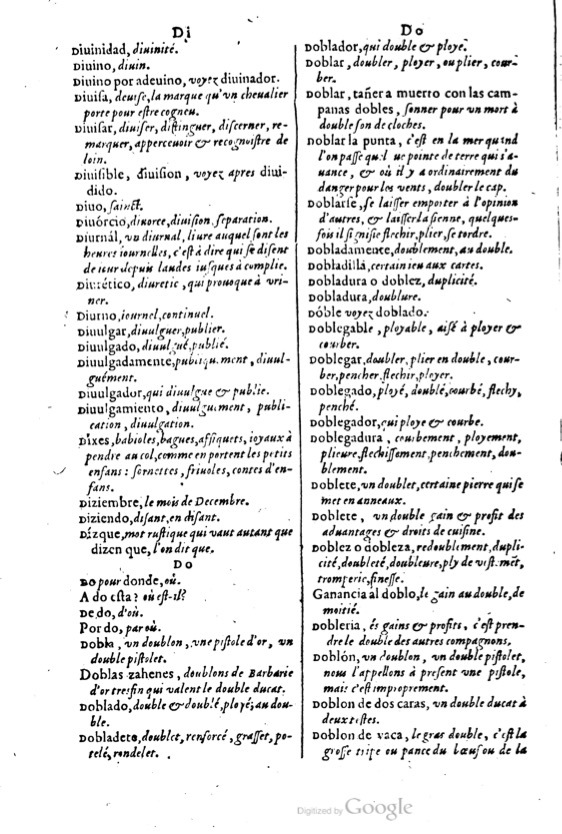 Di
Diuinidad, diuinité.
Diuino, diuin.
Diuino por adeuino, voyez diuinador.
Diuisa, deuise, la marque qu'vn cheualier
porte pour estre cogneu.
Diuisar, diuiser, distinguer, discerner, re-
marquer, apperceuoir & recognoistre de
loin.
Diuisible, diuision, voyez apres diui-
dido.
Diuo, sainct.
Diuórcio, diuorce, diuision, separation.
Diurnál, vn diurnal, liure auquel sont les
heures iournelles, c'est à dire qui se disent
de iour depuis laudes iusques à complie.
Diurético, diuretic, qui prouoque à vri-
ner.
Diurno, iournel, continuel.
Diuulgar, diuulguer, publier.
Diuulgado, diuulgué, publié.
Diuulgadamente, publiquement, diuul-
guément.
Diuulgador, qui diuulgue & publie.
Diuulgamiento, diuulguement, publi-
cation, diuulgation.
Dixes, babioles, bagues, affiquets, ioyaux à
pendre au col, comme en portent les petits
enfans: sornettes, friuoles, contes d'en-
fans.
Diziembre, le mois de Decembre.
Diziendo, disant, en disant.
Dízque, mot rustique qui vaut autant que
dizen que, l'on dit que.
Do
Do pour donde, où.
A do esta? où est-il?
De do, d'où.
Por do, par où.
Dobla, vn doublon, vne pistole d'or, vn
double pistolet.
Doblas zahenes, doublons de Barbarie
d'or tres fin qui valent le double ducat.
Doblado, double & doublé, ployé, au dou-
ble.
Dobladeto, doublet, renforcé, grasset, po-
telé, rondelet.
Do
Doblador, qui double & ploye.
Doblar, doubler, ployer, ou plier, cour-
ber.
Doblar, tañer a muerto con las cam-
panas dobles, sonner pour vn mort à
double son de cloches.
Doblar la punta, c'est en la mer quand
l'on passe quelque pointe de terre qui s'a-
uance, & où il y a ordinairement du
danger pour les vents, doubler le cap.
Doblarse, se laisser emporter à l'opinion
d'autres, & laisser la sienne, quelques-
fois il signifie flechir, plier, se tordre.
Dobladamente, doublement, au double.
Dobladillá, certain ieu aux cartes.
Dobladura o doblez, duplicité.
Dobladura, doublure.
Dóble voyez doblado.
Doblegable, ployable, aisé à ployer &
courber.
Doblegar, doubler, plier en double, cour-
ber, pencher, flechir, ployer.
Doblegado, ployé, doublé, courbé, flechy,
penché.
Doblegador, qui ploye & courbe.
Doblegadura, courbement, ployement,
plieure, flechissement, penchement, dou-
blement.
Doblete, vn doublet, certaine pierre qui se
met en anneaux.
Doblete, vn double gain & profit des
aduantages & droits de cuisine.
Doblez o dobleza, redoublement, dupli-
cité, doubleté, doubleure, ply de vestement,
tromperie, finesse.
Ganancia al doblo, le gain au double, de
moitié.
Dobleria, és gains & profits, c'est pren-
dre le double des autres compagnons,
Doblón, vn doublon, vn double pistolet,
nous l'appellons à present vne pistole,
mais c'est improprement.
Doblon de dos caras, vn double ducat à
deux testes.
Doblon de vaca, le gras double, c'est la
grosse tripe ou pance du bœuf ou de la
Digitized by Google